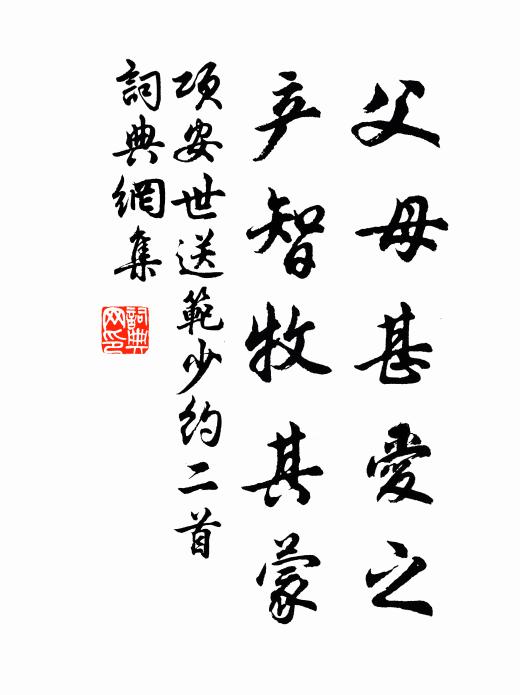 父母甚愛之
弃智牧其蒙
項安世送範少約二首
詞典網集
詞典
网印